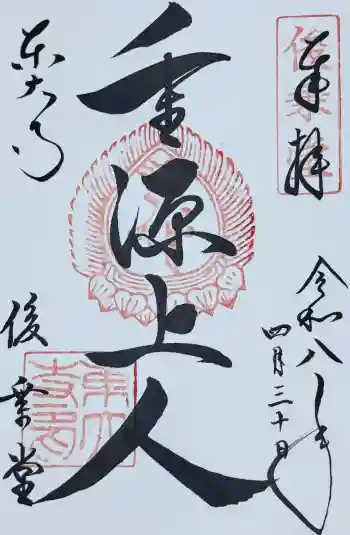 奉拝
俊乗堂
令和八年
四月三十日
重源上人
東大寺
俊乗堂